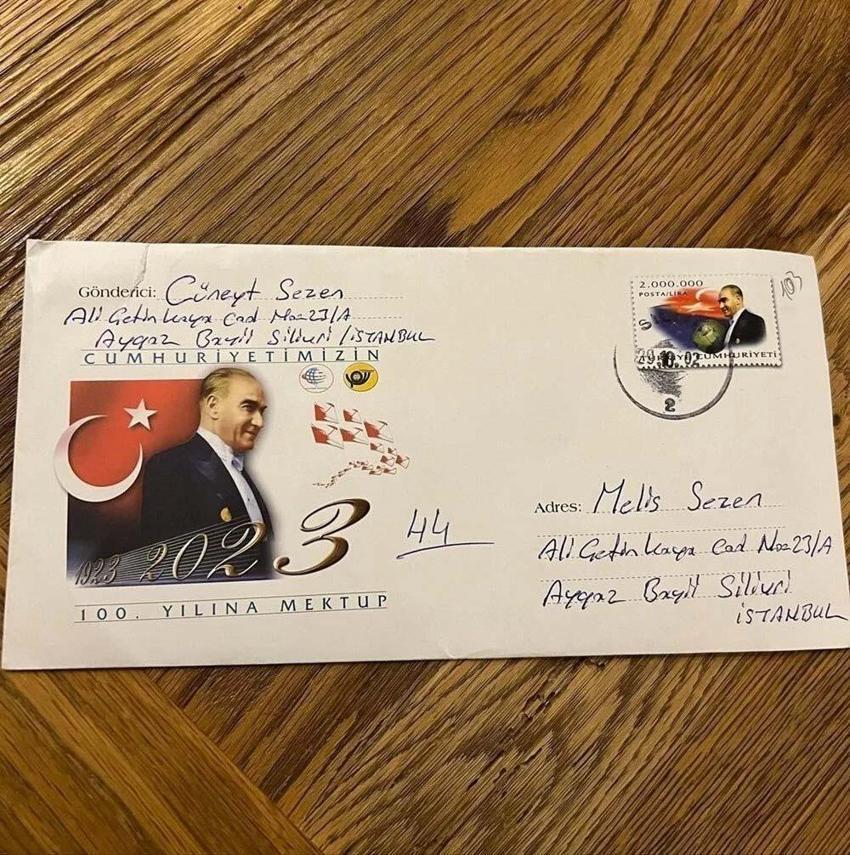 Gönderici: Cüneyt Sezen
Ali Çetinkaya Cad No=23/A
Aygaz Bayii Silivri / İSTANBUL
CUMHURİYETİMİZİN
1923 2023
100. YILINA MEKTUP
44
2.000.000
POSTA/LİRA
TÜRKİYE CUMHURİYETİ
29.10.02
2
103
Adres: Melis Sezen
Ali Çetinkaya Cad No=23/A
Aygaz Bayii Silivri
İSTANBUL